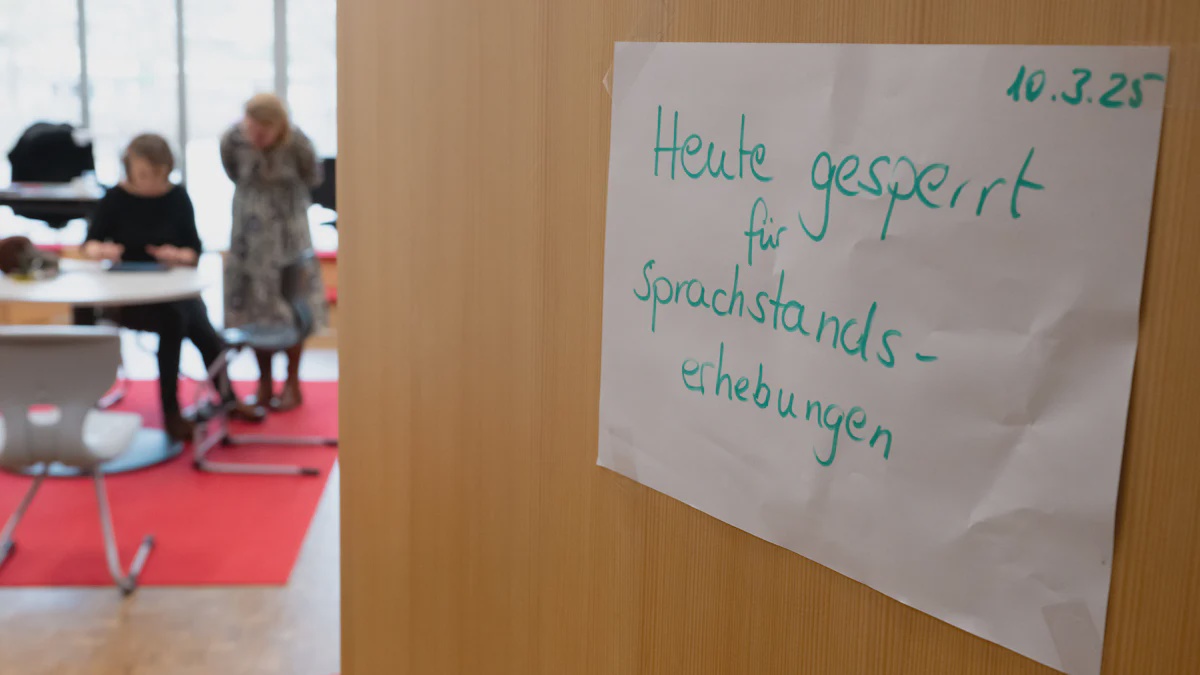 10.3.25
Heute gesperrt
für
Sprachstands-
erhebungen